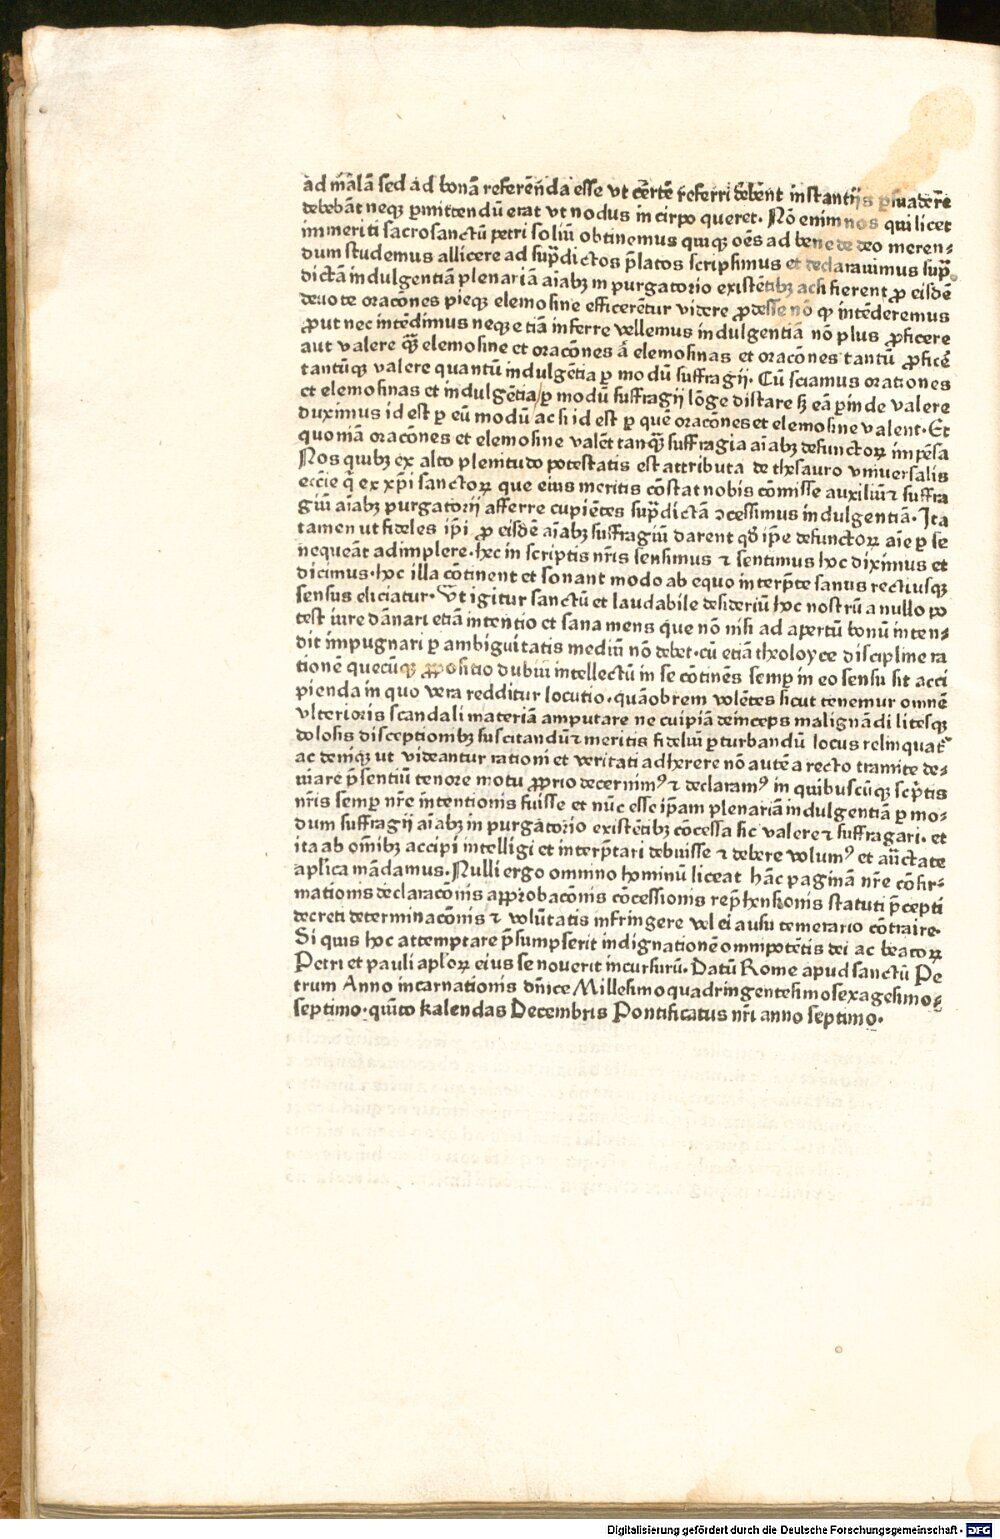 ad mālā sed ad bonā referēnda esse vt cērte referri debēnt instantijs ꝑsuadere
debebāt neqꝫ ꝑmittendū erat vt nodus in cirpo queret. Nō enim nos qui licet
immeriti sacrosanctū petri soliū obtinemus quiqꝫ oēs ad bene de deo meren⸗
dum studemus allicere ad supͣdictos p̄latos scripsimus et declarauimus supͣ
dictā indulgentiā plenariā aīabꝫ in purgatorio existētibꝫ ac si fierent ꝓ eisdē
deuote oracōnes pieqꝫ elemosine efficerētur videre ꝓdesse nō ꝙ intēderemus
ꝓut nec intēdimus neqꝫ etiā inferre vellemus indulgentiā nō plus ꝓficere
aut valere qͣꝫ elemosine et oracōnes ā elemosinas et oracōnes tantū ꝓficē
tantūqꝫ valere quantū indulgētia ꝑ modū suffragij. Cū sciamus orationes
et elemosinas et indulgētia/ꝑ modū suffragij lōge distare sꝫ eā ꝑinde valere
duximus id est ꝑ eū modū ac si id est ꝑ quē oracōnes et elemosine valent. Et
quoniā oracōnes et elemosine valēt tanqͣꝫ suffragia aīabꝫ defunctoꝝ impēsa
Nos quibꝫ ex alto plenitudo potestatis est attributa de thesauro vniuersalis
eccīe q̄ ex xp̄i sanctoꝝ que eius meritis cōstat nobis cōmisse auxiliūꝛ suffra
giū aīabꝫ purgatorij afferre cupiētes supͣdictā ↄcessimus indulgentiā. Ita
tamen ut fideles ip̄i ꝓ eisdē aīabꝫ suffragiū darent qd̄ ip̄e defunctoꝝ aīe ꝑ se
nequeāt adimplere. hec in scriptis nr̄is sensimus ꝛ sentimus hoc diximus et
dicimus. hoc illa cōtinent et sonant modo ab equo interp̄te sanus rectiusqꝫ
sensus eliciatur. Vt igitur sanctū et laudabile desideriū hoc nostrū a nullo po
test iure dānari etiā intentio et sana mens que nō nisi ad apertū bonū inten⸗
dit impugnari ꝑ ambiguitatis mediū nō debet. cū etiā theoloyce discipline ra
tionē quecūqꝫ ꝓpositio dubiū intellectū in se cōtinēs semꝑ in eo sensu sit acci
pienda in quo vera redditur locutio. quāobrem volētes sicut tenemur omnē
vlterioris scandali materiā amputare ne cuipiā deinceps malignādi litesqꝫ
dolosis disceptionibꝫ suscitandūꝛ meritis fideliū ꝑturbandū locus relinquat᷑
ac deniqꝫ ut videantur rationi et veritati adherere nō autē a recto tramite de⸗
uiare p̄sentiū tenore motu ꝓprio decernimꝰ ꝛ declaramꝰ in quibuscūqꝫ sc̄ptis
nr̄is semꝑ nr̄e intentionis fuisse et nūc esse ip̄am plenariā indulgentiā ꝑ mo⸗
dum suffragij aīabꝫ in purgatorio existētibꝫ cōcessa sic valere ꝛ suffragari. et
ita ab om̄ibꝫ accipi intelligi et interp̄tari debuisse ꝛ debere volumꝰ et auctate
aplica mādamus. Nulli ergo omnino hominū liceat hāc paginā nr̄e cōfir⸗
mationis declaracōnis approbacōnis cōcessionis rep̄hensionis statuti p̄cepti
decreti determinacōnis ꝛ volūtatis infringere vel ei ausu temerario cōtraire.
Si quis hoc attemptare p̄sumpserit indignationē omnipotētis dei ac beatoꝝ
Petri et pauli aploꝝ eius se nouerit incursurū. Datū Rome apud sanctū Pe
trum Anno incarnationis dn̄ice Millesimoquadringentesimosexagesimo⸗
septimo. quīto kalendas Decembris Pontificatus nr̄i anno septimo.
Digitalisierung gefördert durch die Deutsche Forschungsgemeinschaft - DFG